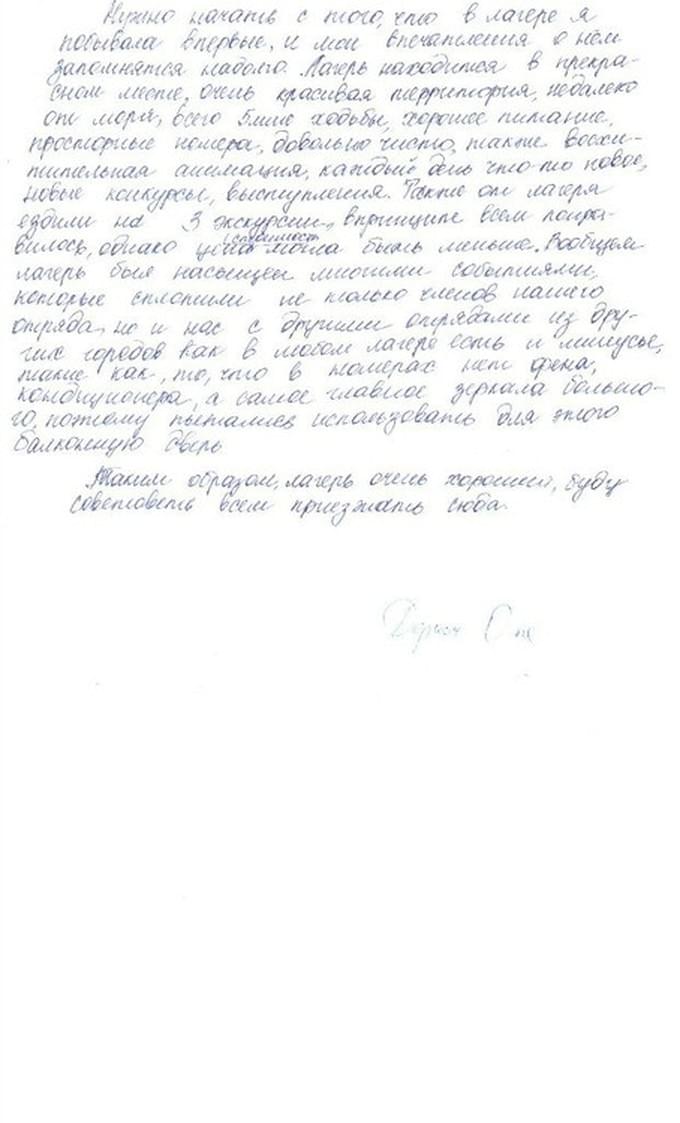 Нужно начать с того, что в лагере я
побывала впервые, и мои впечатления о нём
запомнятся надолго. Лагерь находится в прекра-
сном месте, очень красивая территория, недалеко
от моря, всего 5 мин ходьбы, хорошее питание,
просторные номера, довольно чисто, также восхи-
тительная анимация, каждый день что-то новое,
новые конкурсы, выступления. Также от лагеря
ездили на 3 экскурсии, впринципе всем понра-
стоимость
вилось, однако цена могла быть меньше. Вообщем
лагерь был насыщен многими событиями,
которые сплотили не только членов нашего
отряда, но и нас с другими отрядами из дру-
гих городов Как в любом лагере есть и минусы,
такие как, то, что в номерах нет фена,
кондиционера, а самое главное зеркала большо-
го, поэтому пытались использовать для этого
балконную дверь
Таким образом, лагерь очень хороший, буду
советовать всем приезжать сюда.